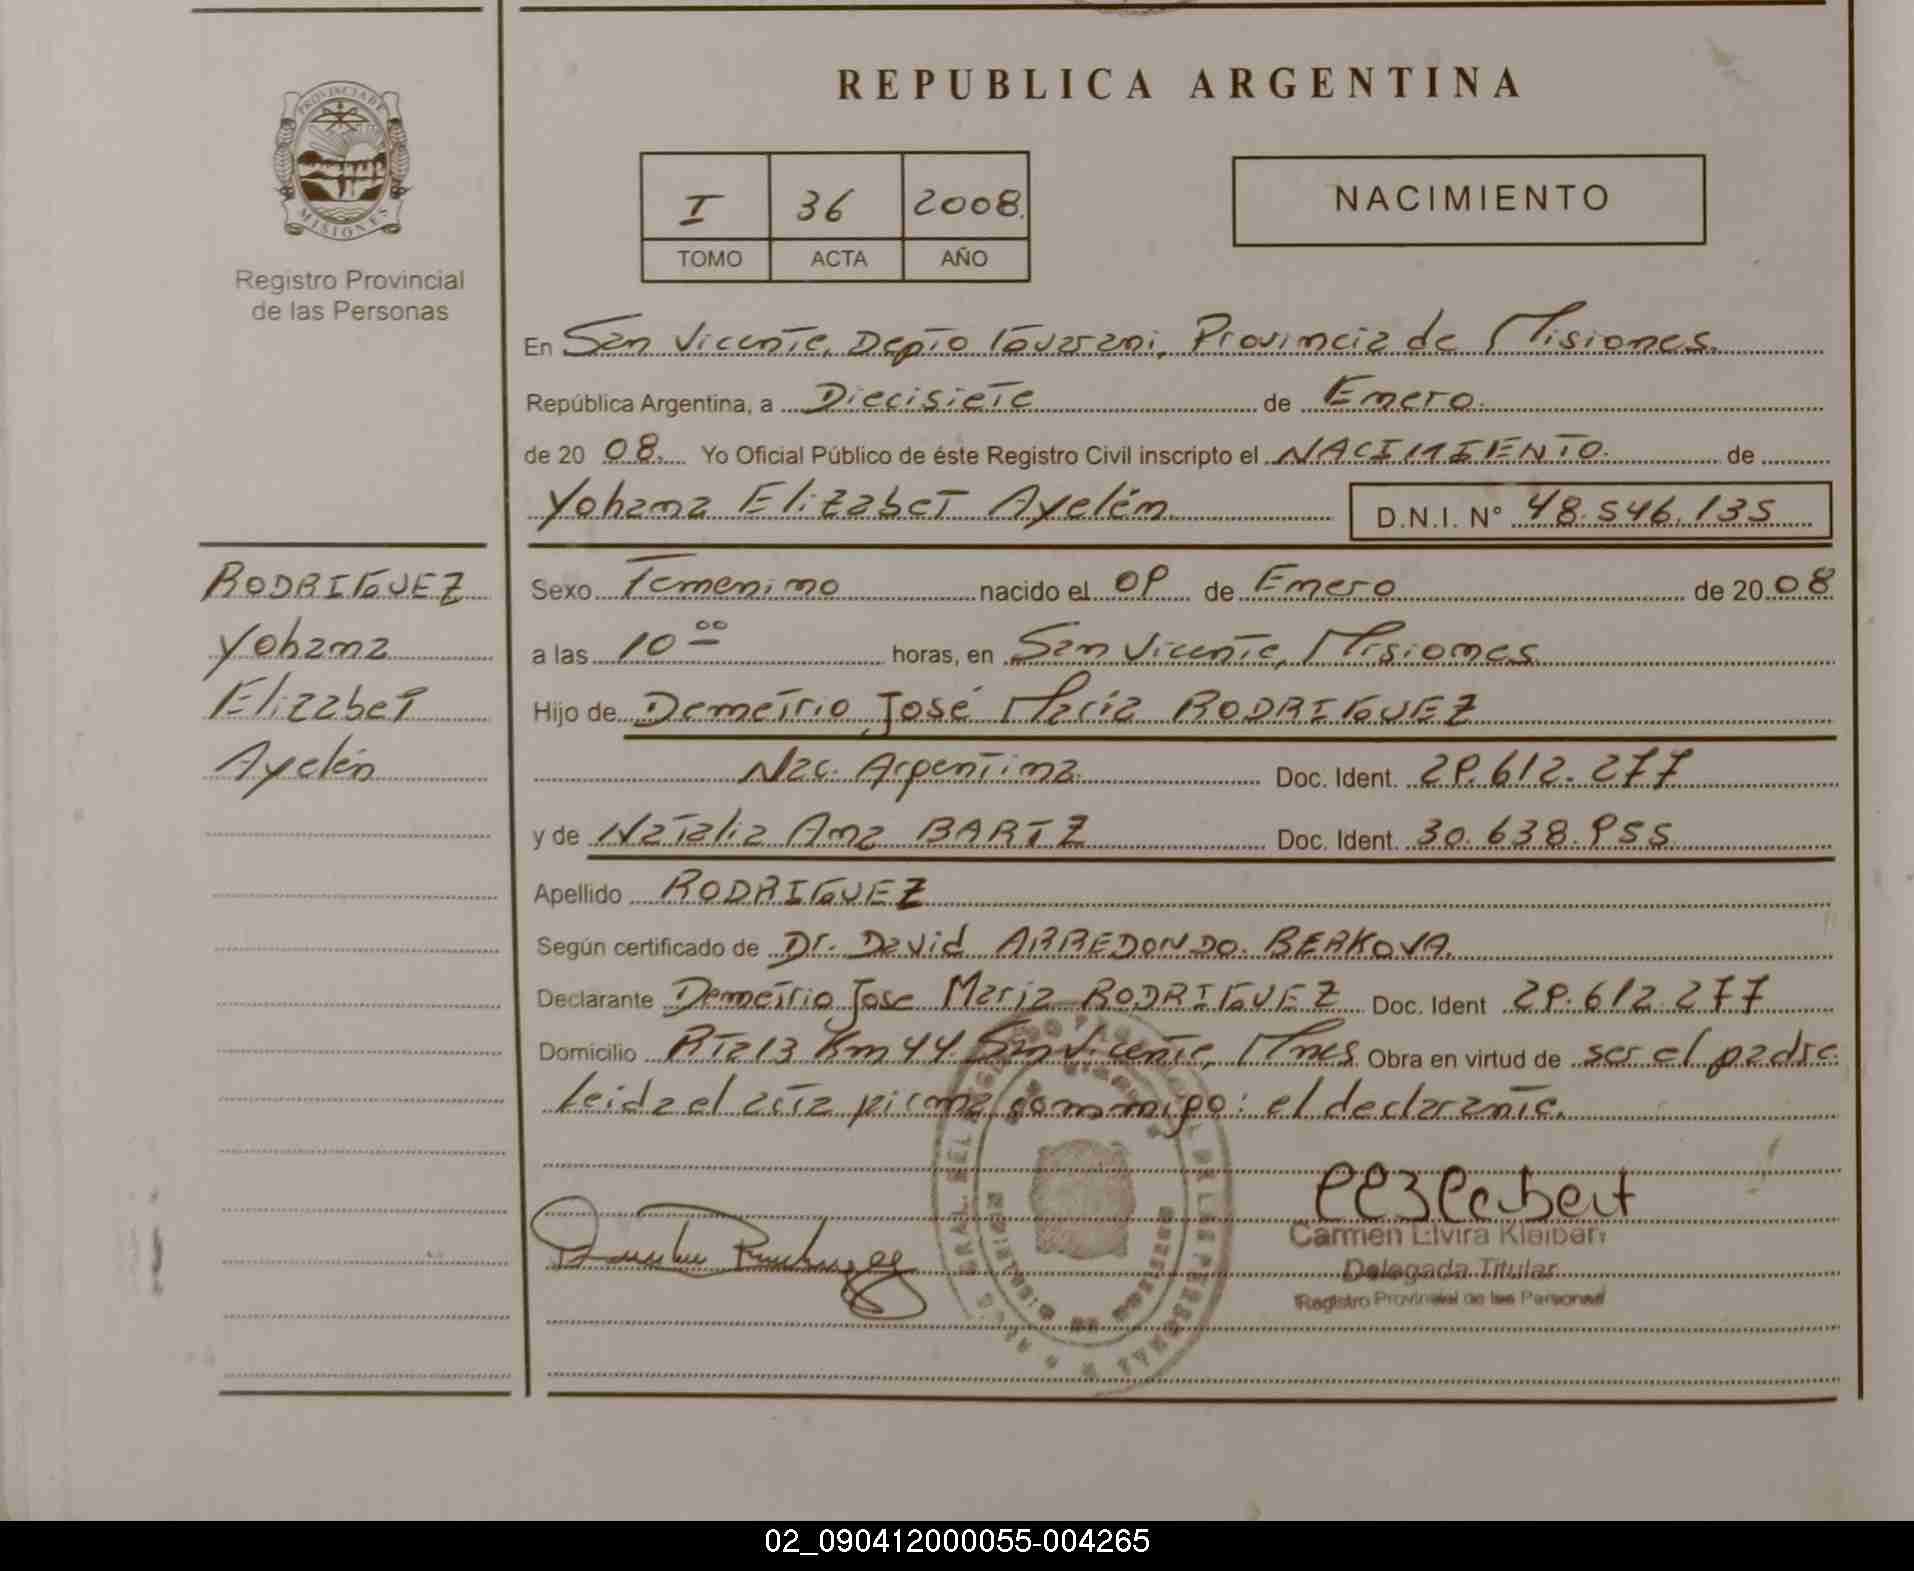 REPUBLICA ARGENTINA
PROVINCIA DE
MISIONES
Registro Provincial
de las Personas
I 36 2008.
TOMO ACTA AÑO
NACIMIENTO
En San Vicente, Depto Guarani, Provincia de Misiones.
República Argentina, a Diecisiete de Enero.
de 20 08. Yo Oficial Público de éste Registro Civil inscripto el NACIMIENTO. de
Yohana Elizabet Ayelén D.N.I. N° 48.546.135
RODRIGUEZ
Yohana
Elizabet
Ayelén
Sexo Femenino nacido el 09 de Enero de 20 08
a las 10 00 horas, en San Vicente, Misiones
Hijo de Demetrio José María RODRIGUEZ
Nac. Argentina. Doc. Ident. 29.612.277
y de Natalia Ana BARTZ Doc. Ident. 30.638.955
Apellido RODRIGUEZ
Según certificado de Dr. David ARREDONDO. BERKOVA.
Declarante Demetrio Jose Maria RODRIGUEZ Doc. Ident 29.612.277
Domicilio Rta 13 Km 44 San Vicente, Mnes. Obra en virtud de ser el padre
leida el acta firma conmigo: el declarante.
Carmen Elvira Kleibert
Delegada Titular
Registro Provincial de las Personas
02_090412000055-004265